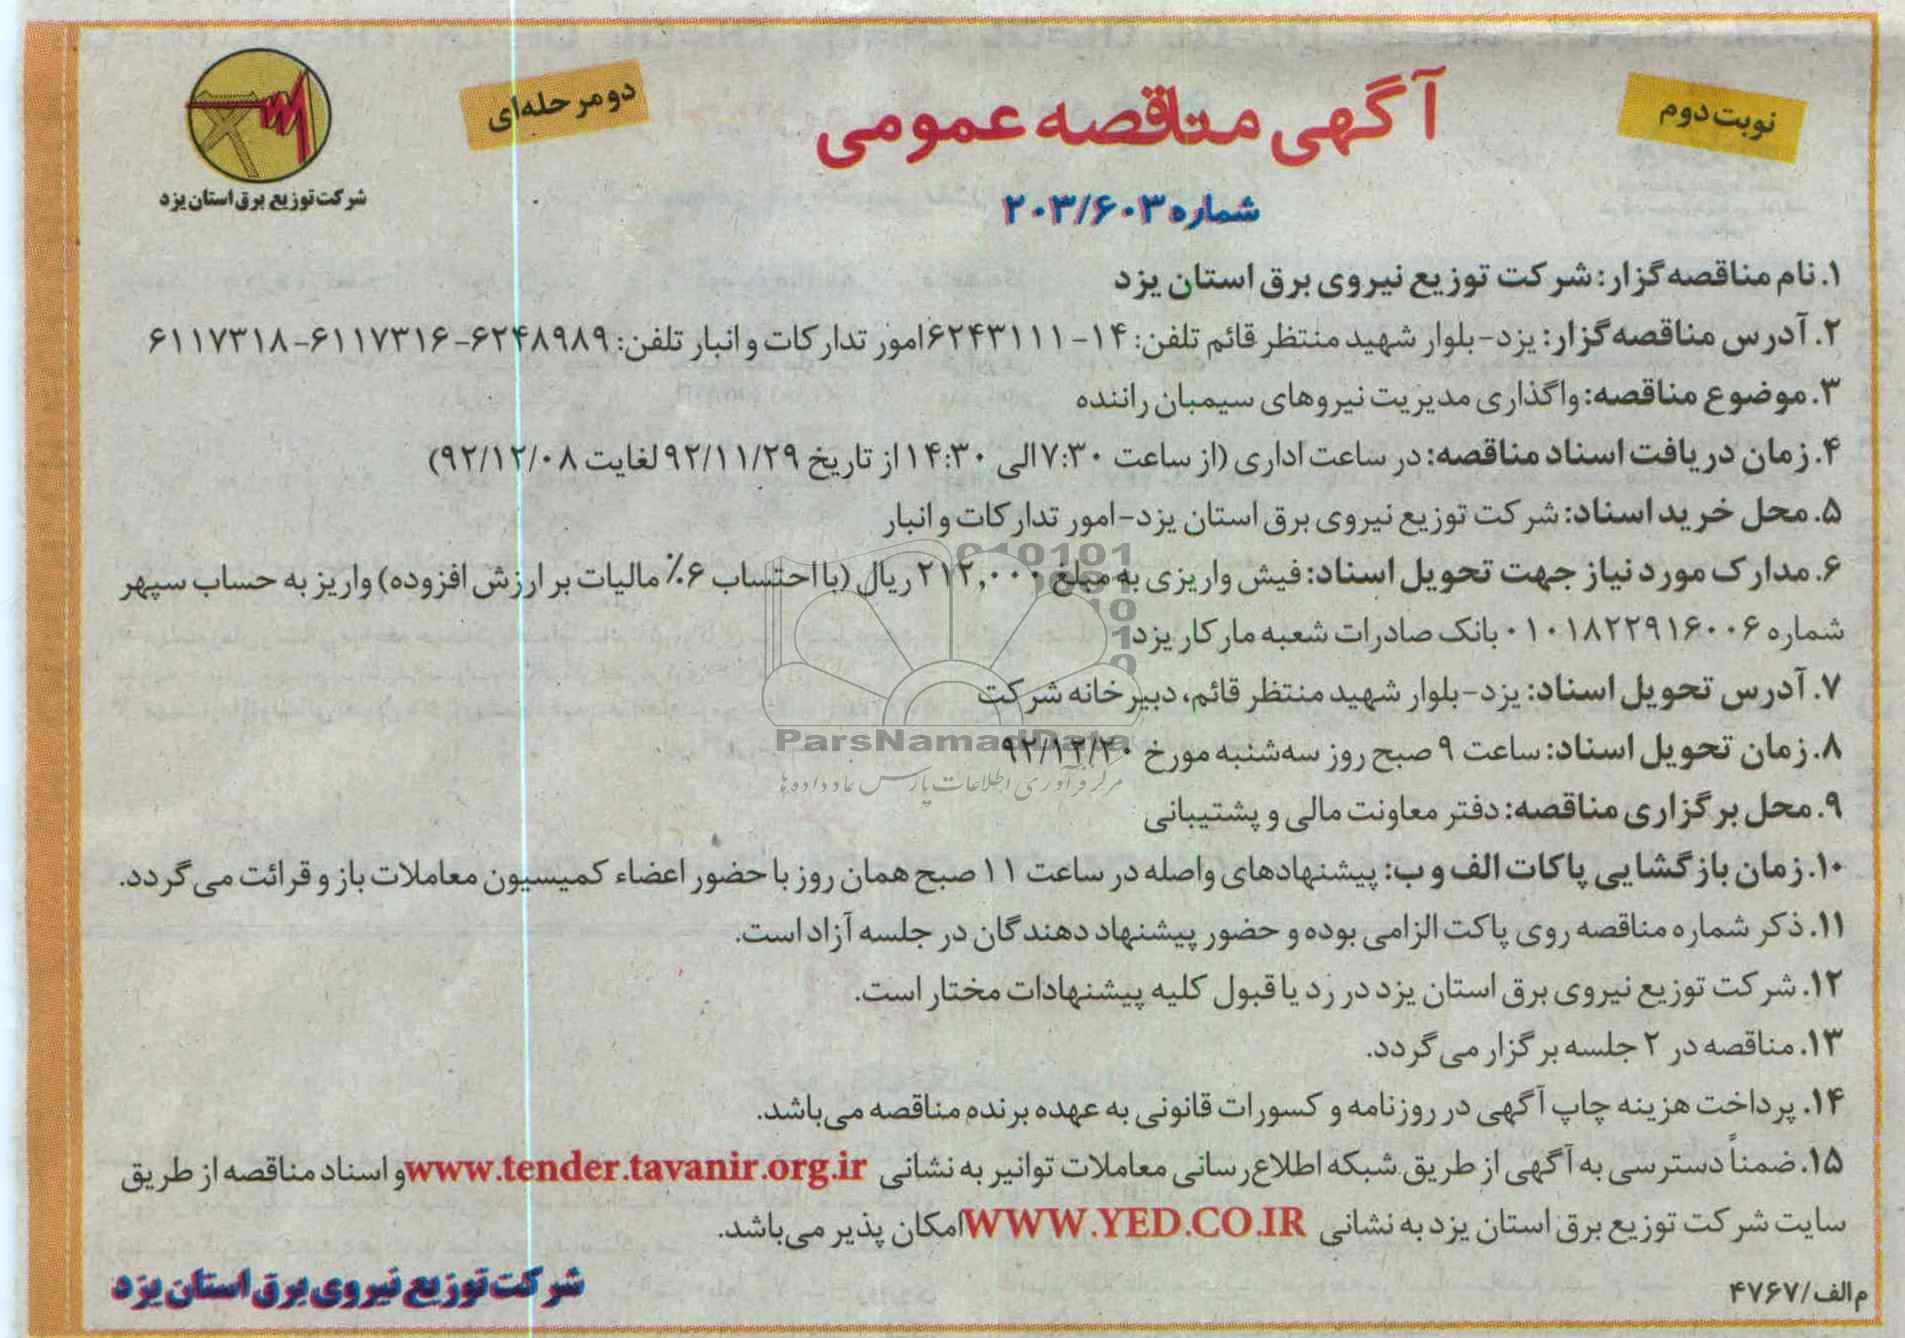 نوبت دوم
آگهی مناقصه عمومی
دو مرحله‌ای
شماره ۲۰۳/۶۰۳
شرکت توزیع برق استان یزد
۱. نام مناقصه‌گزار: شرکت توزیع نیروی برق استان یزد
۲. آدرس مناقصه‌گزار: یزد-بلوار شهید منتظر قائم تلفن: ۱۴-۶۲۴۳۱۱۱ امور تدارکات و انبار تلفن: ۶۲۴۸۹۸۹-۶۱۱۷۳۱۶-۶۱۱۷۳۱۸
۳. موضوع مناقصه: واگذاری مدیریت نیروهای سیمبان راننده
۴. زمان دریافت اسناد مناقصه: در ساعت اداری (از ساعت ۷:۳۰ الی ۱۴:۳۰ از تاریخ ۹۲/۱۱/۲۹ لغایت ۹۲/۱۲/۰۸)
۵. محل خرید اسناد: شرکت توزیع نیروی برق استان یزد-امور تدارکات و انبار
۶. مدارک مورد نیاز جهت تحویل اسناد: فیش واریزی به مبلغ ۲۱۲,۰۰۰ ریال (با احتساب ۶٪ مالیات بر ارزش افزوده) واریز به حساب سپهر
شماره ۰۱۰۱۸۲۲۹۱۶۰۰۶ بانک صادرات شعبه مارکار یزد
۷. آدرس تحویل اسناد: یزد-بلوار شهید منتظر قائم، دبیرخانه شرکت
۸. زمان تحویل اسناد: ساعت ۹ صبح روز سه‌شنبه مورخ ۹۲/۱۲/۲۰
۹. محل برگزاری مناقصه: دفتر معاونت مالی و پشتیبانی
۱۰. زمان بازگشایی پاکات الف و ب: پیشنهادهای واصله در ساعت ۱۱ صبح همان روز با حضور اعضاء کمیسیون معاملات باز و قرائت می‌گردد.
۱۱. ذکر شماره مناقصه روی پاکت الزامی بوده و حضور پیشنهاد دهندگان در جلسه آزاد است.
۱۲. شرکت توزیع نیروی برق استان یزد در رد یا قبول کلیه پیشنهادات مختار است.
۱۳. مناقصه در ۲ جلسه برگزار می‌گردد.
۱۴. پرداخت هزینه چاپ آگهی در روزنامه و کسورات قانونی به عهده برنده مناقصه می‌باشد.
۱۵. ضمناً دسترسی به آگهی از طریق شبکه اطلاع‌رسانی معاملات توانیر به نشانی www.tender.tavanir.org.ir و اسناد مناقصه از طریق
سایت شرکت توزیع برق استان یزد به نشانی WWW.YED.CO.IR امکان پذیر می‌باشد.
م الف/۴۷۶۷
شرکت توزیع نیروی برق استان یزد
ParsNamadData
مرکز فرآوری اطلاعات پارس نماد داده ها